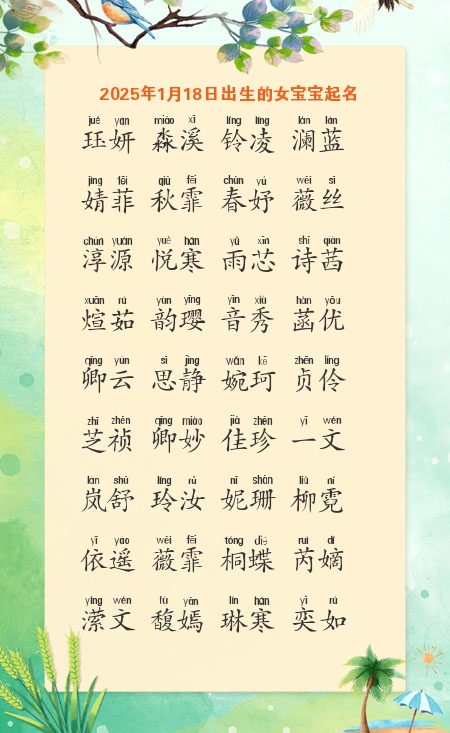 2025年1月18日出生的女宝宝起名
jué yán miǎo xī líng líng lán lán
珏妍 淼溪 铃凌 澜蓝
jìng fēi qiū fēi chūn yú wēi sī
婧菲 秋霏 春妤 薇丝
chún yuán yuè hán yǔ xīn shī qiàn
淳源 悦寒 雨芯 诗茜
xuān rú yùn yīng yīn xiù hàn yōu
煊茹 韵璎 音秀 菡优
qīng yún sī jìng wǎn kē zhēn líng
卿云 思静 婉珂 贞伶
zhī zhēn qīng miào jiā zhēn yī wén
芝祯 卿妙 佳珍 一文
lán shū líng rǔ nī shān liǔ ní
岚舒 玲汝 妮珊 柳霓
yī yáo wēi fēi tóng dié ruì dí
依遥 薇霏 桐蝶 芮嫡
yíng wén fù yān lín hán yì rú
潆文 馥嫣 琳寒 奕如